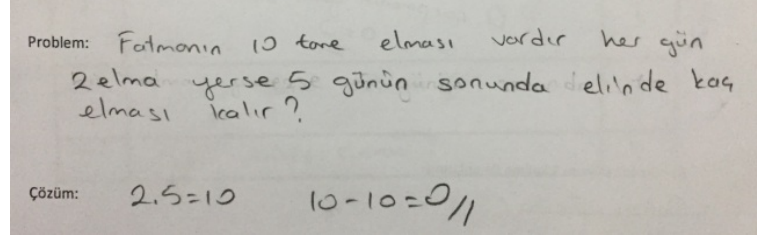 Problem: Fatmanın 10 tane elması vardır her gün
2 elma yerse 5 günün sonunda elinde kaç
elması kalır?
Çözüm: 2.5=10 10-10=0//